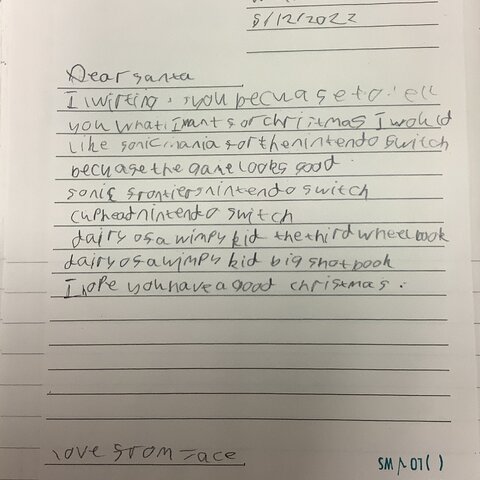 5/12/2022
Dear santa
I wirting you becuase to
you what I want for christmas I would
like sonic mania for the nintendo switch
becuase the game looks good.
sonic frontiers nintendo switch
cuphead nintendo switch
dairy of a wimpy kid the third wheel book
dairy of a wimpy kid big shot book
I hope you have a good christmas.
love from